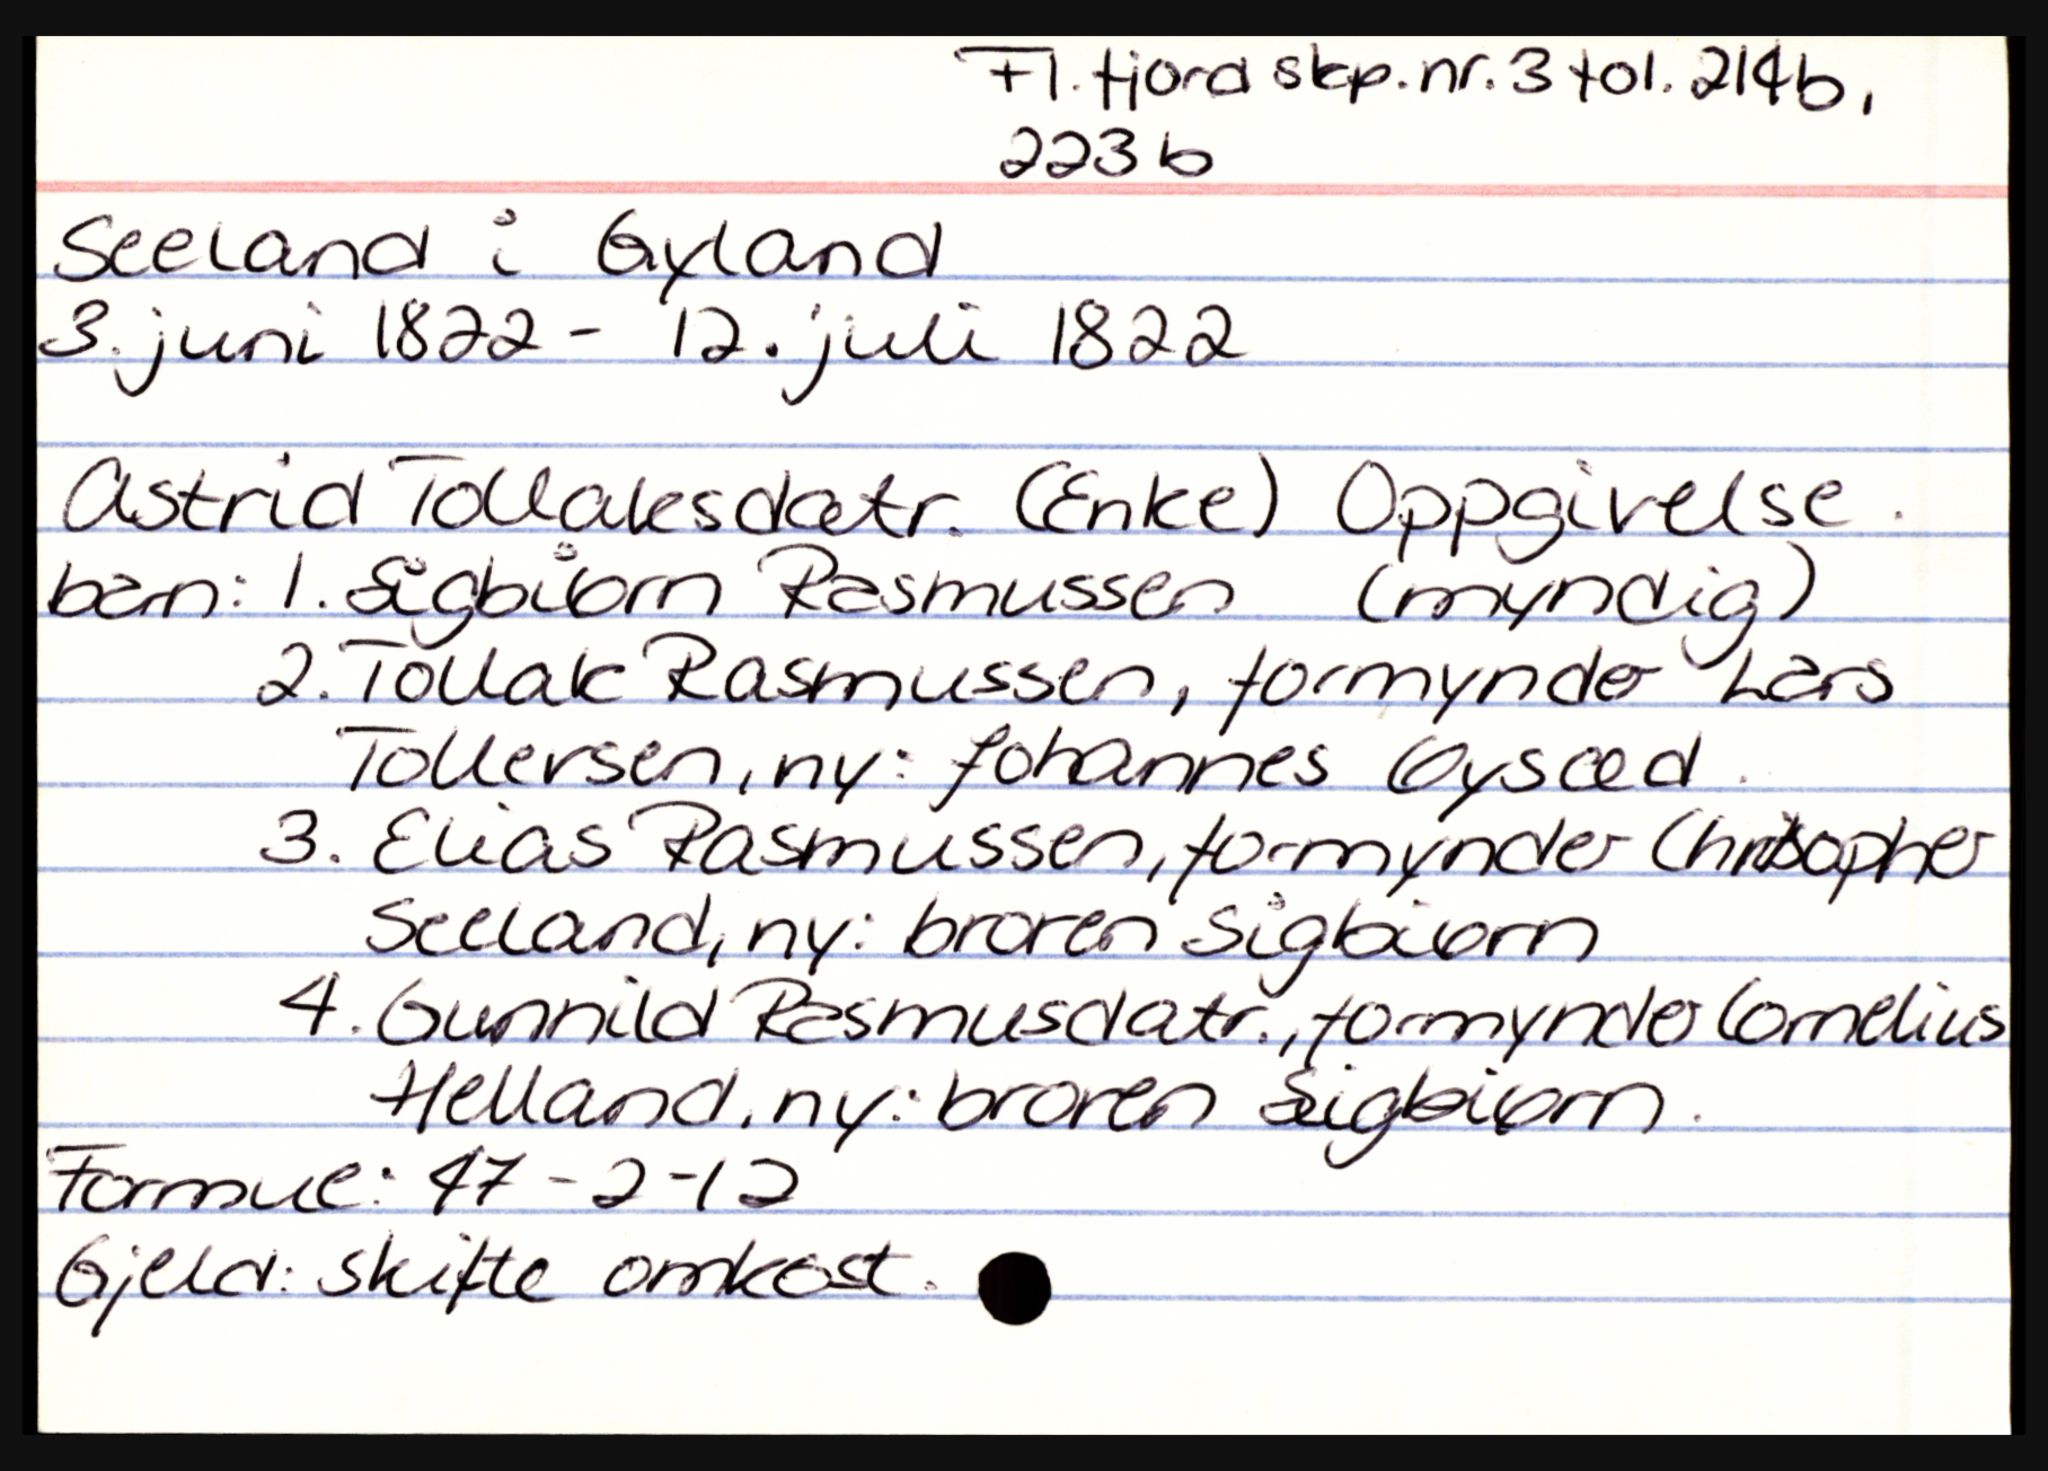 Fl.fjord skp.nr.3 fol. 214b,
223b
Seeland i Gyland
3. juni 1822 - 12. juli 1822
Astrid Tollaksdatr. (Enke) Oppgivelse.
barn: 1. Sigbiørn Rasmussen (myndig)
2. Tollak Rasmussen, formynder Lars
Tollersen, ny: Johannes Øysæd.
3. Elias Rasmussen, formynder Christopher
Seeland, ny: broren Sigbiørn
4. Gunnild Rasmusdatr., formynder Cornelius
Helland, ny: broren Sigbiørn.
Formue: 47-2-12
Gjeld: skifte omkost.